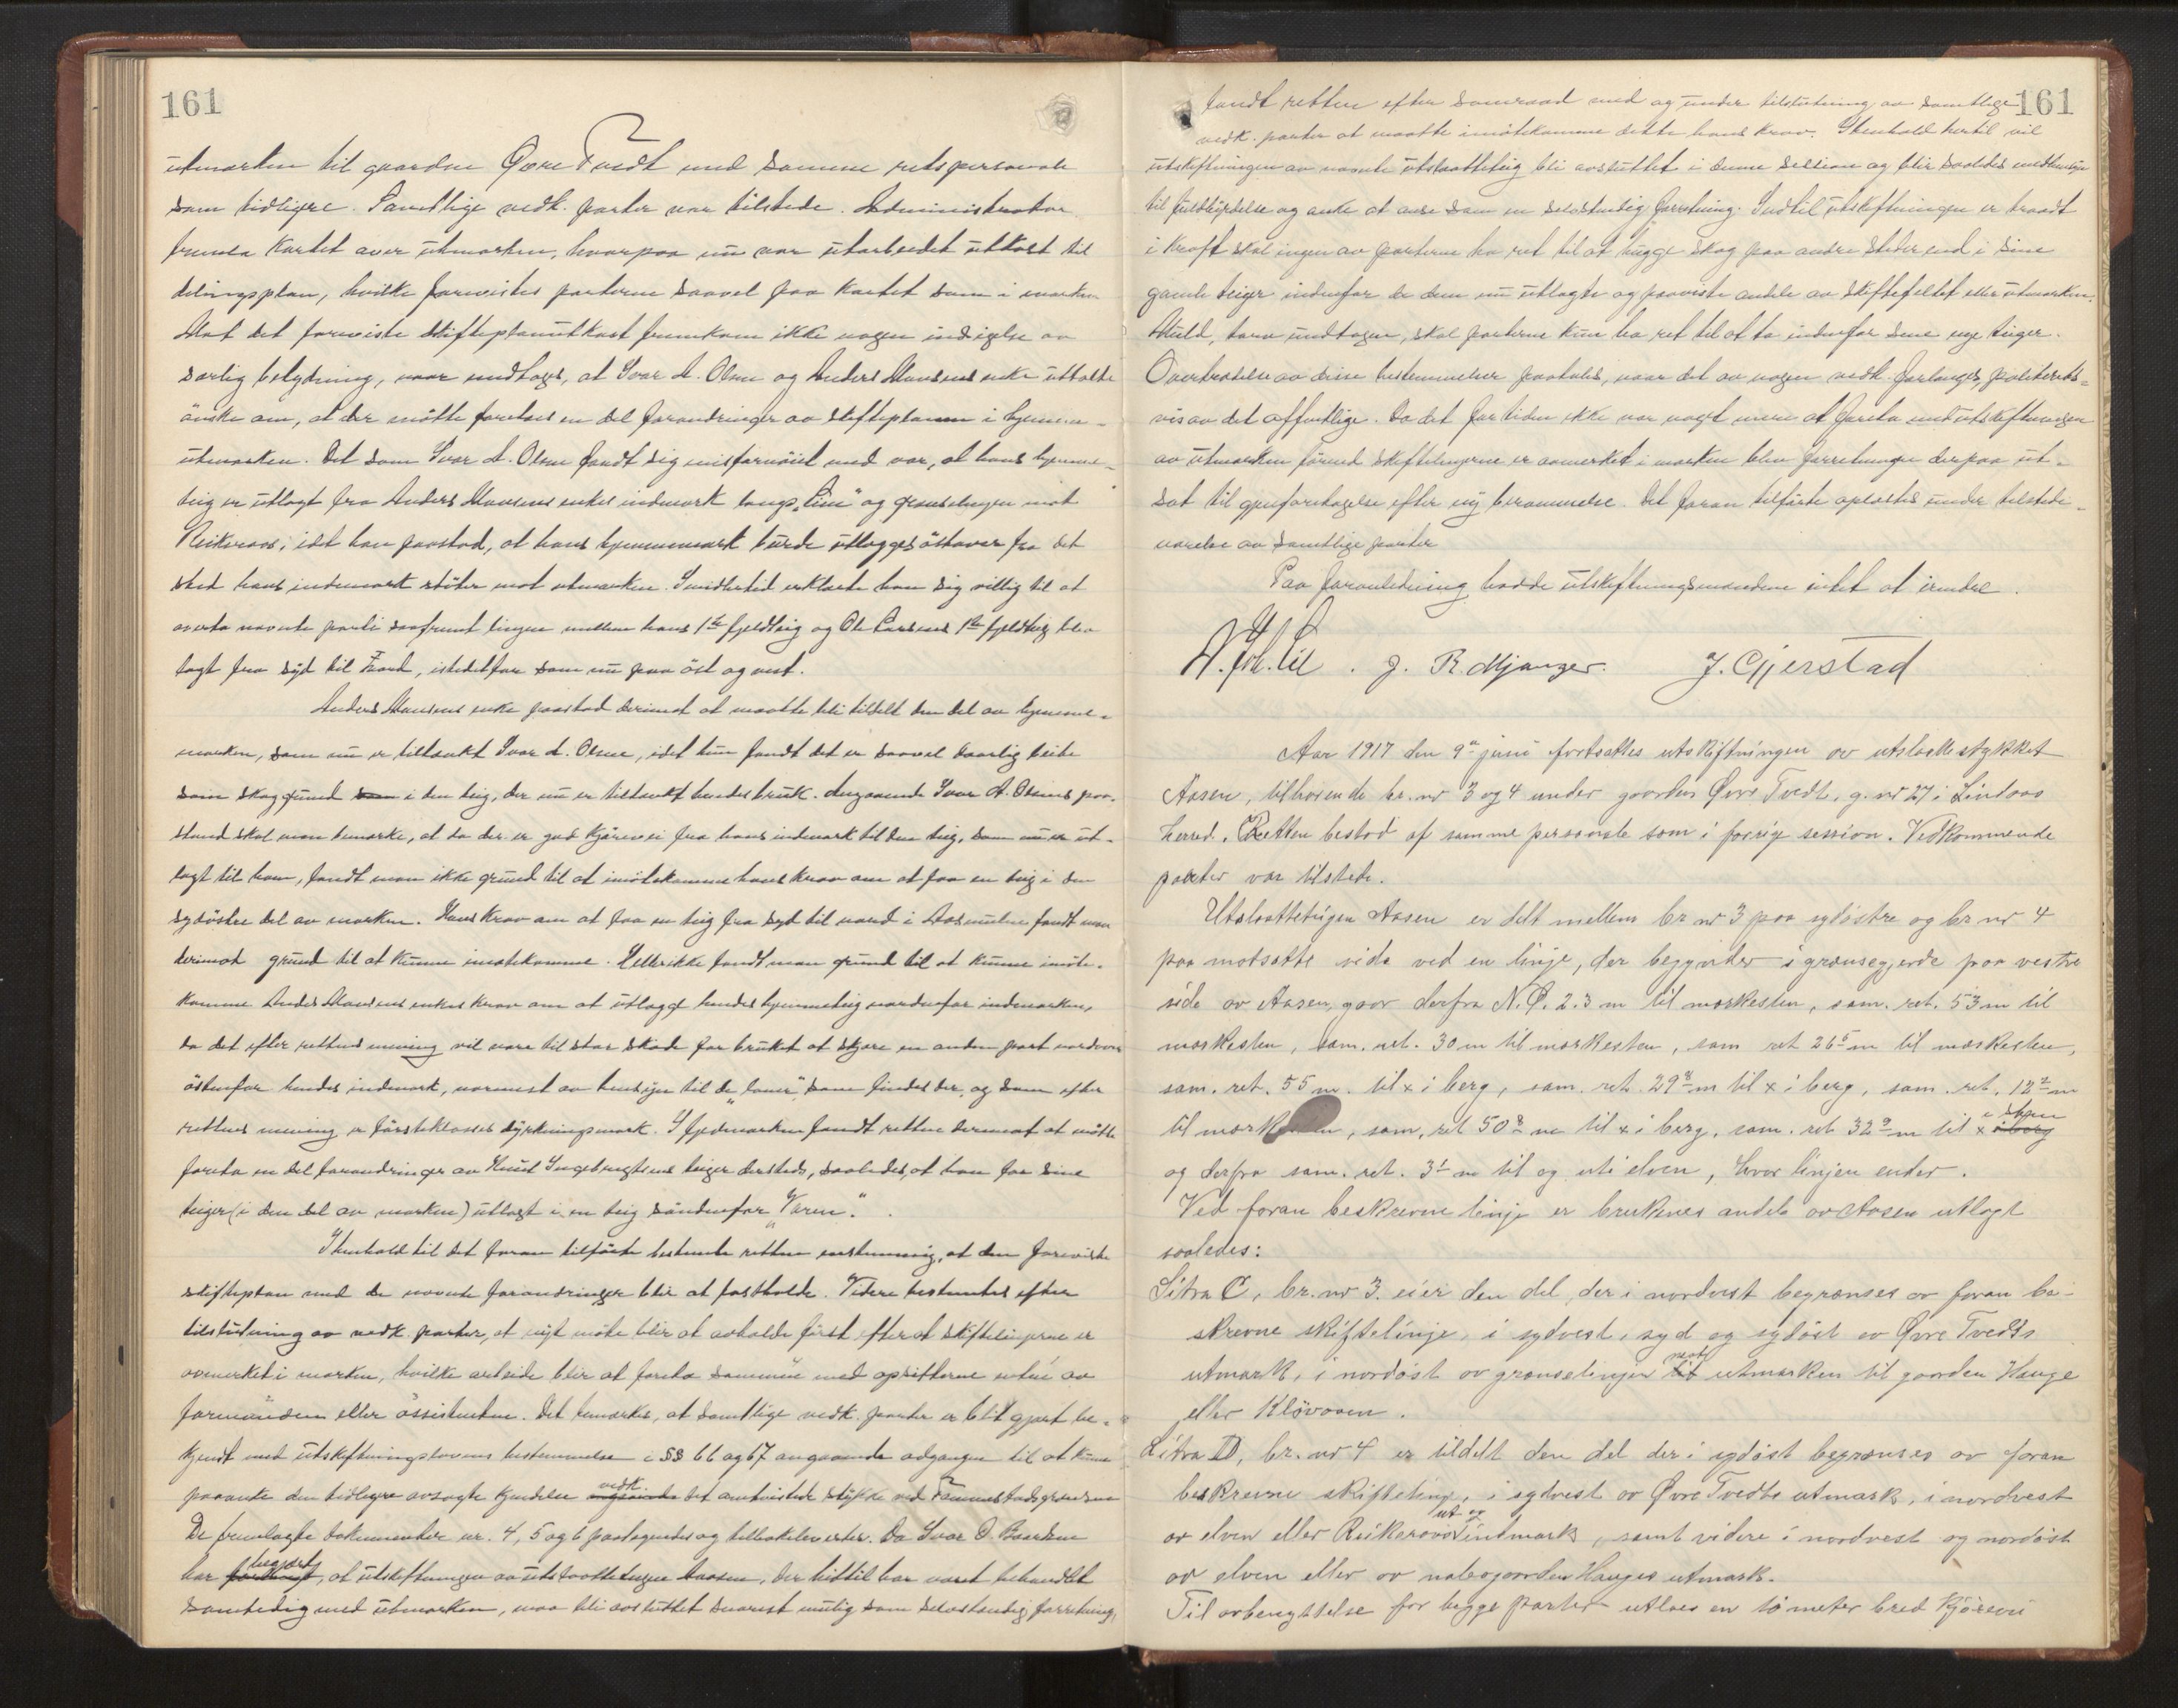 161
utmarken til gaarden Øvre Tvedt med samme retspersonale
som tidligere. Samtlige vedk. parter var tilstede. Administrator
fremla kartet over utmarken, hvorpaa nu var utarbeidet utkast til
delingsplan, hvilke forevistes parterne saavel paa kartet som i marken.
Mot det foreviste skifteplanutkast fremkom ikke nogen indsigelse av
særlig betydning, naar undtages, at Ivar A. Olsen og Anders Monsens enke uttalte
ønske om, at der maatte foretaes en del forandringer av skifteplanen i hjemme-
utmarken. Det som Ivar A. Olsen fandt sig misfornøiet med var, at hans hjemme-
teig er utlagt fra Anders Monsens enkes indmark langs "Lien" og grænselinjen mot
Reikeraas, idet han paastod, at hans hjemmemark burde utlægges østover fra det
sted hans indmark støter mot utmarken. Imidlertid erklærte han sig villig til at
overta nævnte parti saafremt linjen mellem hans 1ste fjeldteig og Ole Larsens 1ste fjeldteig blev
lagt fra syd til nord, istedetfor som nu paa øst og vest.
Anders Monsens enke paastod derimot at maatte bli tildelt den del av hjemme-
marken, som nu er tiltænkt Ivar A. Olsen, idet hun fandt det er saavel daarlig beite
som skoggrund som i den teig, der nu er tiltænkt hendes bruk. Angaaende Ivar A. Olsens paa-
stand skal man bemærke, at da der er god kjørevei fra hans indmark til den teig, som nu er ut-
lagt til ham, fandt man ikke grund til at imøtekomme hans krav om at faa en teig i den
sydøstre del av marken. Hans krav om at faa en teig fra syd til nord i Aasmulen fandt man
derimot grund til at kunne imøtekomme. Heller ikke fandt man grund til at kunne imøte-
komme Anders Monsens enkes krav om at utlægge hendes hjemmeteig nordenfor indmarken,
da det efter rettens mening vil være til stor skade for bruket at skjære en anden part nordover
østenfor hendes indmark, nærmest av hensyn til de "loner", som findes der, og som efter
rettens mening er førsteklasses dyrkningsmark. I fjeldmarken fandt retten derimot at maatte
foreta en del forandringer av Knud Ingebrigtsens teiger dersteds, saaledes, at han faar sine
teiger (i den del av marken) utlagt i en teig søndenfor "Varen".
I henhold til det foran tilførte bestemte retten enstemmig, at den foreviste
skifteplan med de nævnte forandringer blir at fastholde. Videre bestemtes efter
tilslutning av vedk. parter, at nyt møte blir at avholde først efter at skiftelinjerne er
avmerket i marken, hvilke arbeide blir at foreta sammen med opsitterne enten av
formanden eller assistenten. Det bemerkes, at samtlige vedk. parter er blit gjort be-
kjendt med utskiftningslovens bestemmelse i §§ 66 og 67 angaaende adgangen til at kunne
paaanke den tidligere avsagte kjendelse angaaende vedk. det omtvistede stykke ved Tømmestadsgrænsen
De fremlagte dokumenter nr. 4, 5 og 6 paategnedes og tilbakeleverter. Da Ivar O.
har forlangt begjært, at utskiftningen av utslaatteteigen Aasen, der hittil har været behandlet
samtidig med utmarken, maa bli avsluttet snarest mulig som selvstændig forretning,
161
fandt retten efter samraad med og under tilslutning av samtlige
vedk. parter at maatte imøtekomme dette hans krav. I henhold hertil vil
utskiftningen av nævnte utslaatteteig bli avsluttet i denne session og blir saaledes medhensyn
til fuldbyrdelse og anke at anse som en selvstændig forretning. Indtil utskiftningen er traadt
i kraft skal ingen av parterne ha ret til at hugge skog paa andre steder end i sine
gamle teiger indenfor de dem nu utlagte og paaviste andele av skiftefeltet eller utmarken.
Muld, torv undtagen, skal parterne kun ha ret til at ta indenfor sine nye teiger.
Overtrædelse av disse bestemmelser paatales, naar det av nogen vedk. forlanges, politirets-
vis av det offentlige. Da det for tiden ikke var noget mere at foreta ved utskiftningen
av utmarken førend skiftelinjerne er avmerket i marken blev forretningen derpaa ut-
sat til gjenforetagelse efter ny berammelse. Det foran tilførte oplæstes under tilstede-
værelse av samtlige parter
Paa foranledning hadde utskiftningsmændene intet at erindre.
J. R. Mjanger. J. Gjerstad
Aar 1917 den 9de juni fortsattes utskiftningen av utslaattestykket
Aasen, tilhørende br. nr 3 og 4 under gaarden Øvre Tvedt, g. nr 27 i Lindaas
herred. Retten bestod af samme personale som i forrige session. Vedkommende
parter var tilstede.
Utslaatteteigen Aasen er delt mellem br. nr 3 paa sydøstre og br nr 4
paa motsatte side ved en linje, der begynder i grænsegjerde paa vestre
side av Aasen, gaar derfra N.Ø. 2.3 m til merkesten, sam. ret. 53 m til
merkesten, sam. ret. 30 m til merkesten, sam ret 26⁵ m til merkesten,
sam. ret. 55 m. til x i berg, sam. ret. 29⁸ m til x i berg, sam. ret. 12² m
til merkestenen, sam. ret 50⁸ m til x i berg, sam. ret 32⁹ m til x i berg i sten
og derfra sam. ret. 3¹ m til og uti elven, hvor linjen ender.
Ved foran beskrevne linje er brukenes andele av Aasen utlagt
saaledes:
Litra C, br. nr 3. eier den del, der i nordvest begrænses av foran be-
skrevne skiftelinje, i sydvest, syd og sydøst av Øvre Tvedts
utmark, i nordøst av grænselinjen til mot utmarken til gaarden Hauge
eller Kløvaaen.
Litra D, br. nr 4 er tildelt den del der i sydøst begrænses av foran
beskrevne skiftelinje, i sydvest av Øvre Tvedts utmark, i nordvest
av elven eller Reikeraas ut og indmark, samt videre i nordvest og nordøst
av elven eller av nabogaarden Hauges utmark.
Til avbenyttelse for begge parter utlaes en to meter bred kjørevei